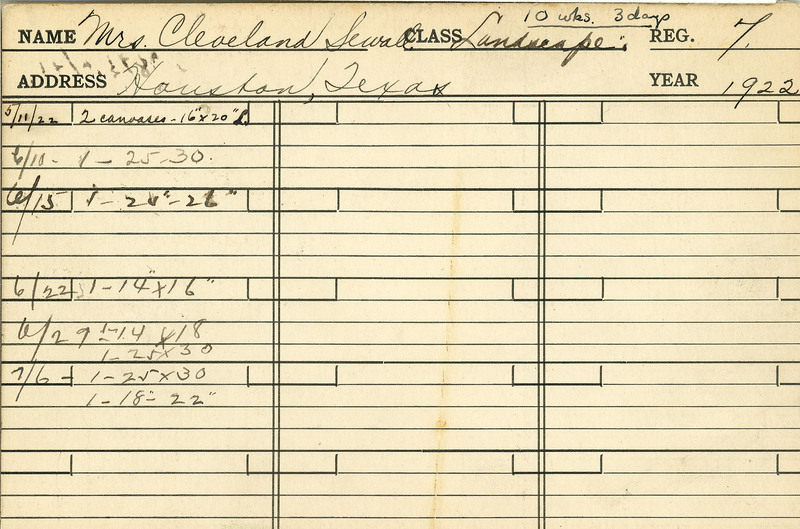 10 wks. 3 days
NAME Mrs. Cleveland Sewall CLASS Landscape. REG. 7.
ADDRESS Houston, Texas YEAR 1922
5/11/22 2 canvases - 16"x20"
6/10 - 1 - 25-30.
6/15 1 -
6/22 1-14"x16"
6/29 1-14 x18
1-25x30
7/6 - 1-25x30
1-18"- 22"